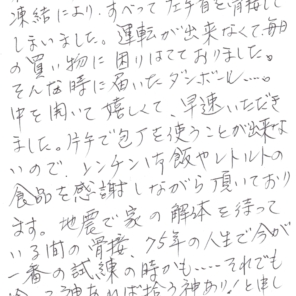 凍結により、すべって左手首を骨接して
しまいました。運転が出来なくて、毎日
の買い物に困りはてておりました。
そんな時に届いたダンボール……。
中を開いて嬉しくて、早速いただき
ました。片手で包丁を使うことが出来な
いので、レンチンご飯やレトルトの
食品を感謝しながら頂いており
ます。地震で家の解体を待って
いる間の骨接、75年の人生で今が
一番の試練の時かも……それでも
神あれば拾う神あり！と申し